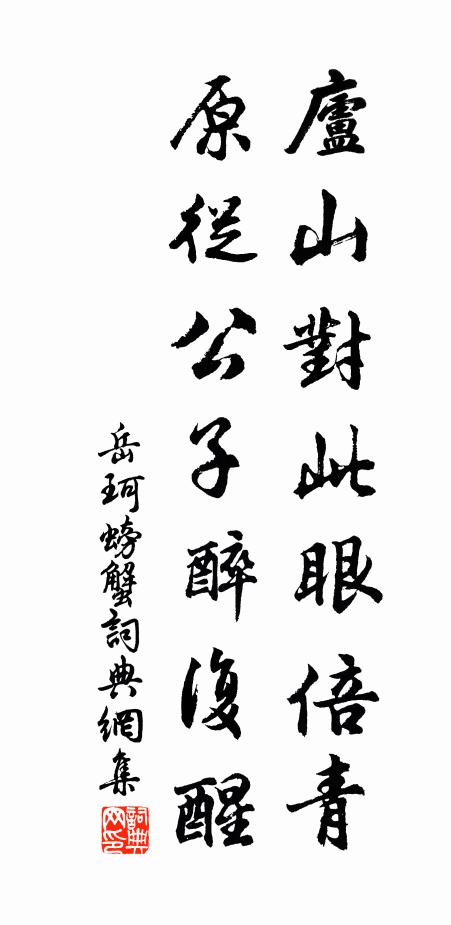 廬山對此眼倍青
原從公子醉復醒
岳珂螃蟹詞典網集
詞典网印